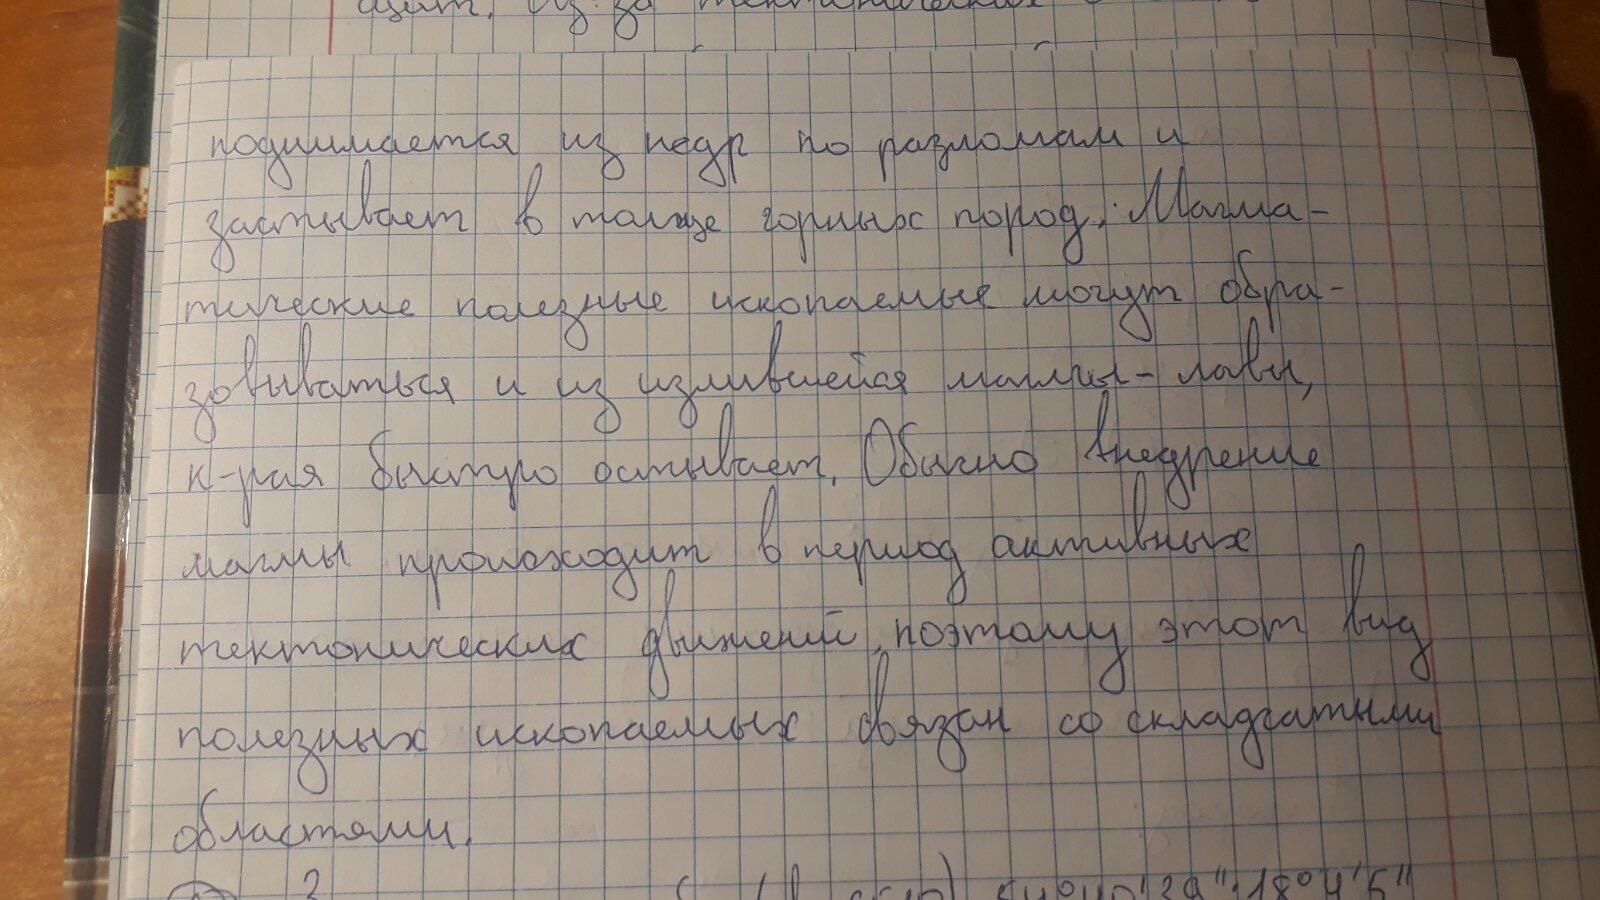 из-за тектонических
поднимается из недр по разломам и
застывает в толще горных пород. Магма-
тические полезные ископаемые могут обра-
зовываться и из излившейся магмы - лавы,
к-рая быстро остывает. Обычно внедрение
магмы происходит в период активных
тектонических движений, поэтому этот вид
полезных ископаемых связан со складчатыми
областями.